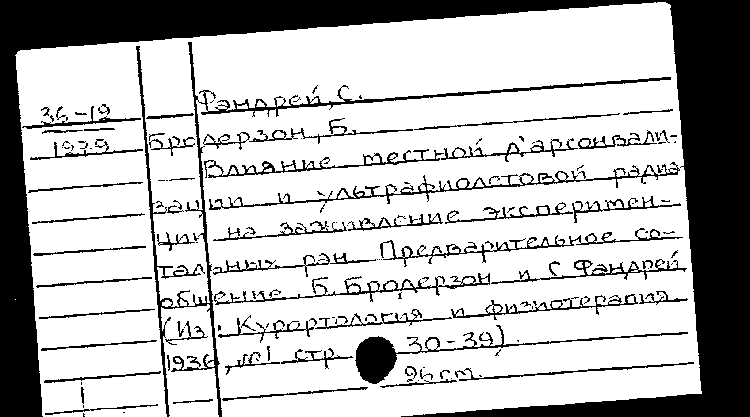 Фэндрей, С.
36-19
1279
Бродерзон, Б.
Влияние местной д'арсонвали-
зации и ультрафиолетовой радиа
ции на заживление эксперимен-
тальных ран. Предварительное со-
общение. Б. Бродерзон и С. Фэндрей
(Из: Курортология и физиотерапия.
1936, №1 стр. 30-39)
26 cm.